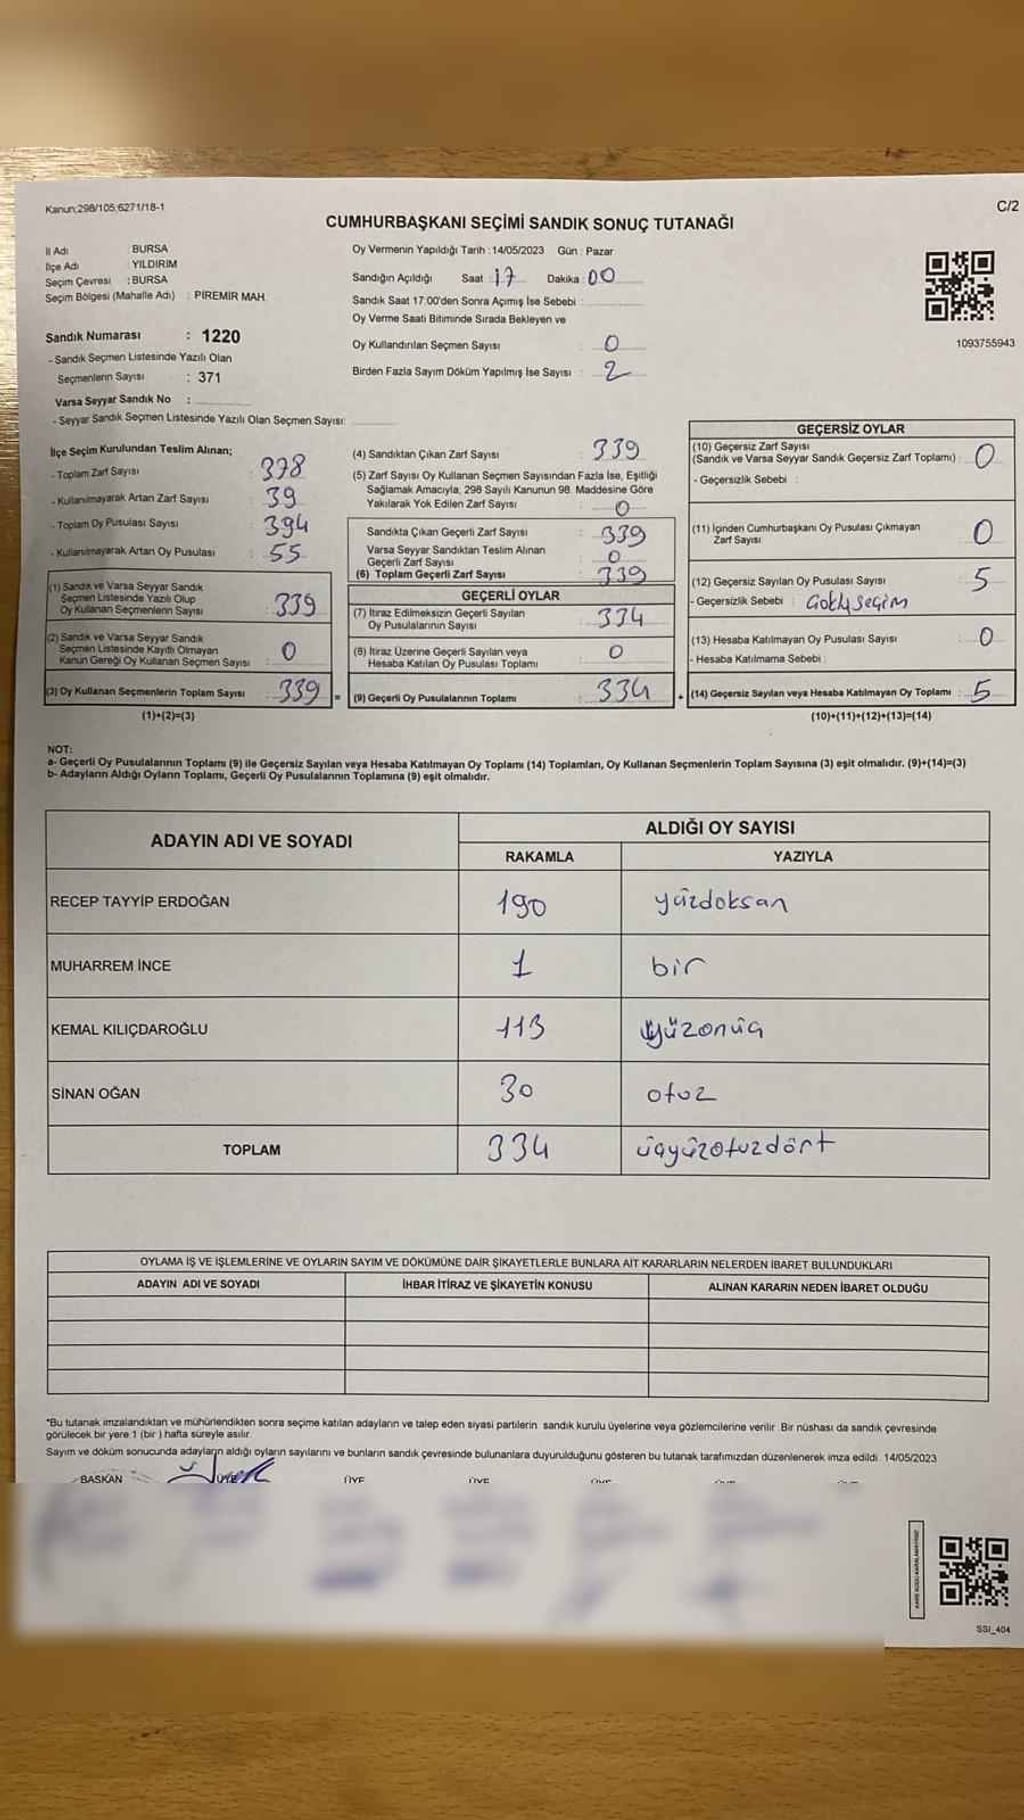 Kanun;298/105;6271/18-1
C/2
CUMHURBAŞKANI SEÇİMİ SANDIK SONUÇ TUTANAĞI
İl Adı BURSA
İlçe Adı YILDIRIM
Seçim Çevresi : BURSA
Seçim Bölgesi (Mahalle Adı) : PİREMİR MAH.
Oy Vermenin Yapıldığı Tarih : 14/05/2023 Gün : Pazar
Sandığın Açıldığı Saat : 17 Dakika : 00
Sandık Saat 17:00'den Sonra Açımış İse Sebebi :
Oy Verme Saati Bitiminde Sırada Bekleyen ve
Oy Kullandırılan Seçmen Sayısı : 0
Birden Fazla Sayım Döküm Yapılmış İse Sayısı : 2
1093755943
Sandık Numarası : 1220
- Sandık Seçmen Listesinde Yazılı Olan
Seçmenlerin Sayısı : 371
Varsa Seyyar Sandık No :
- Seyyar Sandık Seçmen Listesinde Yazılı Olan Seçmen Sayısı:
İlçe Seçim Kurulundan Teslim Alınan;
- Toplam Zarf Sayısı : 378
- Kullanılmayarak Artan Zarf Sayısı : 39
- Toplam Oy Pusulası Sayısı : 394
- Kullanılmayarak Artan Oy Pusulası : 55
(1) Sandık ve Varsa Seyyar Sandık
Seçmen Listesinde Yazılı Olup
Oy Kullanan Seçmenlerin Sayısı : 339
(2) Sandık ve Varsa Seyyar Sandık
Seçmen Listesinde Kayıtlı Olmayan
Kanun Gereği Oy Kullanan Seçmen Sayısı : 0
(3) Oy Kullanan Seçmenlerin Toplam Sayısı : 339
(1)+(2)=(3)
(4) Sandıktan Çıkan Zarf Sayısı : 339
(5) Zarf Sayısı Oy Kullanan Seçmen Sayısından Fazla İse, Eşitliği
Sağlamak Amacıyla, 298 Sayılı Kanunun 98. Maddesine Göre
Yakılarak Yok Edilen Zarf Sayısı : 0
Sandıkta Çıkan Geçerli Zarf Sayısı : 339
Varsa Seyyar Sandıktan Teslim Alınan
Geçerli Zarf Sayısı : 0
(6) Toplam Geçerli Zarf Sayısı : 339
GEÇERLİ OYLAR
(7) İtiraz Edilmeksizin Geçerli Sayılan
Oy Pusulalarının Sayısı : 334
(8) İtiraz Üzerine Geçerli Sayılan veya
Hesaba Katılan Oy Pusulası Toplamı : 0
= (9) Geçerli Oy Pusulalarının Toplamı : 334
GEÇERSİZ OYLAR
(10) Geçersiz Zarf Sayısı
(Sandık ve Varsa Seyyar Sandık Geçersiz Zarf Toplamı) : 0
- Geçersizlik Sebebi :
(11) İçinden Cumhurbaşkanı Oy Pusulası Çıkmayan
Zarf Sayısı : 0
(12) Geçersiz Sayılan Oy Pusulası Sayısı : 5
- Geçersizlik Sebebi : seçim
(13) Hesaba Katılmayan Oy Pusulası Sayısı : 0
- Hesaba Katılmama Sebebi :
+ (14) Geçersiz Sayılan veya Hesaba Katılmayan Oy Toplamı : 5
(10)+(11)+(12)+(13)=(14)
NOT:
a- Geçerli Oy Pusulalarının Toplamı (9) ile Geçersiz Sayılan veya Hesaba Katılmayan Oy Toplamı (14) Toplamları, Oy Kullanan Seçmenlerin Toplam Sayısına (3) eşit olmalıdır. (9)+(14)=(3)
b- Adayların Aldığı Oyların Toplamı, Geçerli Oy Pusulalarının Toplamına (9) eşit olmalıdır.
ADAYIN ADI VE SOYADI
ALDIĞI OY SAYISI
RAKAMLA YAZIYLA
RECEP TAYYİP ERDOĞAN 190 yüzdoksan
MUHARREM İNCE 1 bir
KEMAL KILIÇDAROĞLU 113 yüzonüç
SİNAN OĞAN 30 otuz
TOPLAM 334 üçyüzotuzdört
OYLAMA İŞ VE İŞLEMLERİNE VE OYLARIN SAYIM VE DÖKÜMÜNE DAİR ŞİKAYETLERLE BUNLARA AİT KARARLARIN NELERDEN İBARET BULUNDUKLARI
ADAYIN ADI VE SOYADI İHBAR İTİRAZ VE ŞİKAYETİN KONUSU ALINAN KARARIN NEDEN İBARET OLDUĞU
*Bu tutanak imzalandıktan ve mühürlendikten sonra seçime katılan adayların ve talep eden siyasi partilerin sandık kurulu üyelerine veya gözlemcilerine verilir. Bir nüshası da sandık çevresinde
görülecek bir yere 1 (bir ) hafta süreyle asılır.
Sayım ve döküm sonucunda adayların aldığı oyların sayılarını ve bunların sandık çevresinde bulunanlara duyurulduğunu gösteren bu tutanak tarafımızdan düzenlenerek imza edildi. 14/05/2023
BAŞKAN ÜYE ÜYE ÜYE
SSI_404